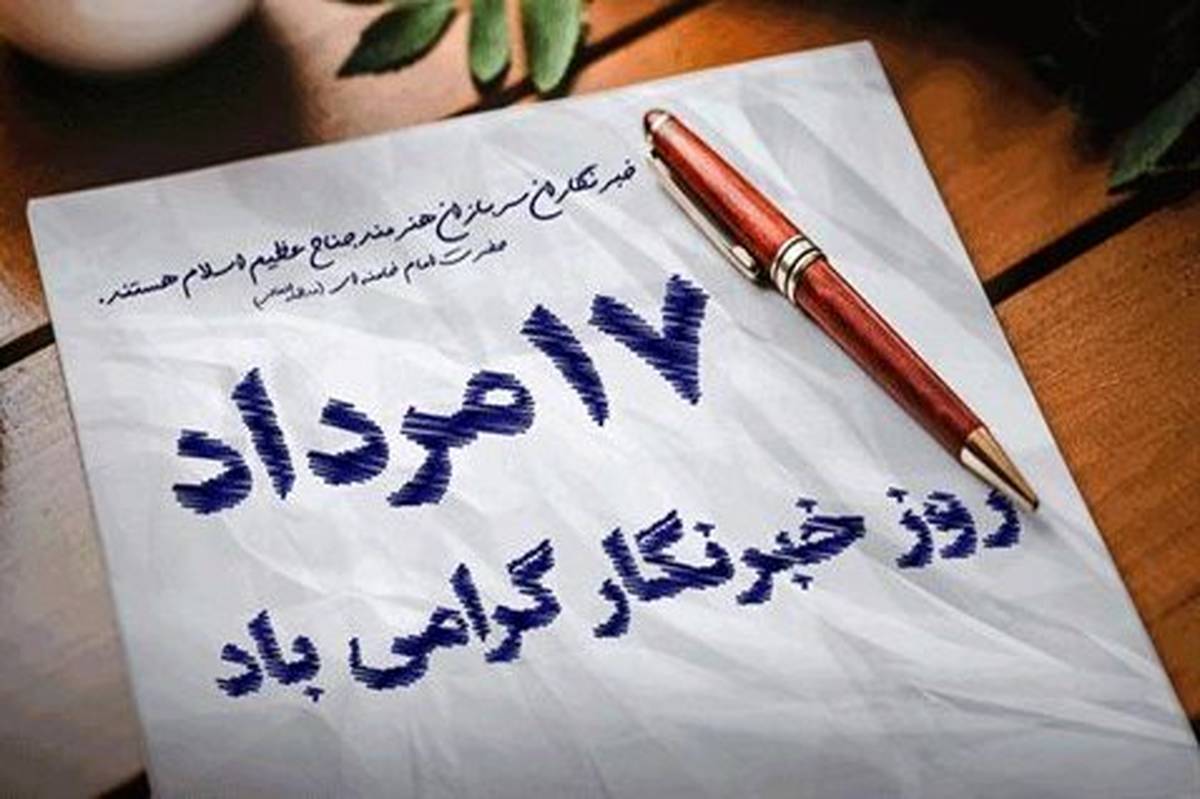 خبرنگاران سربازان هنرمند جناح عظیم اسلام هستند.
حضرت امام خامنه ای (مدظله العالی)
۱۷ مرداد
روز خبرنگار گرامی باد